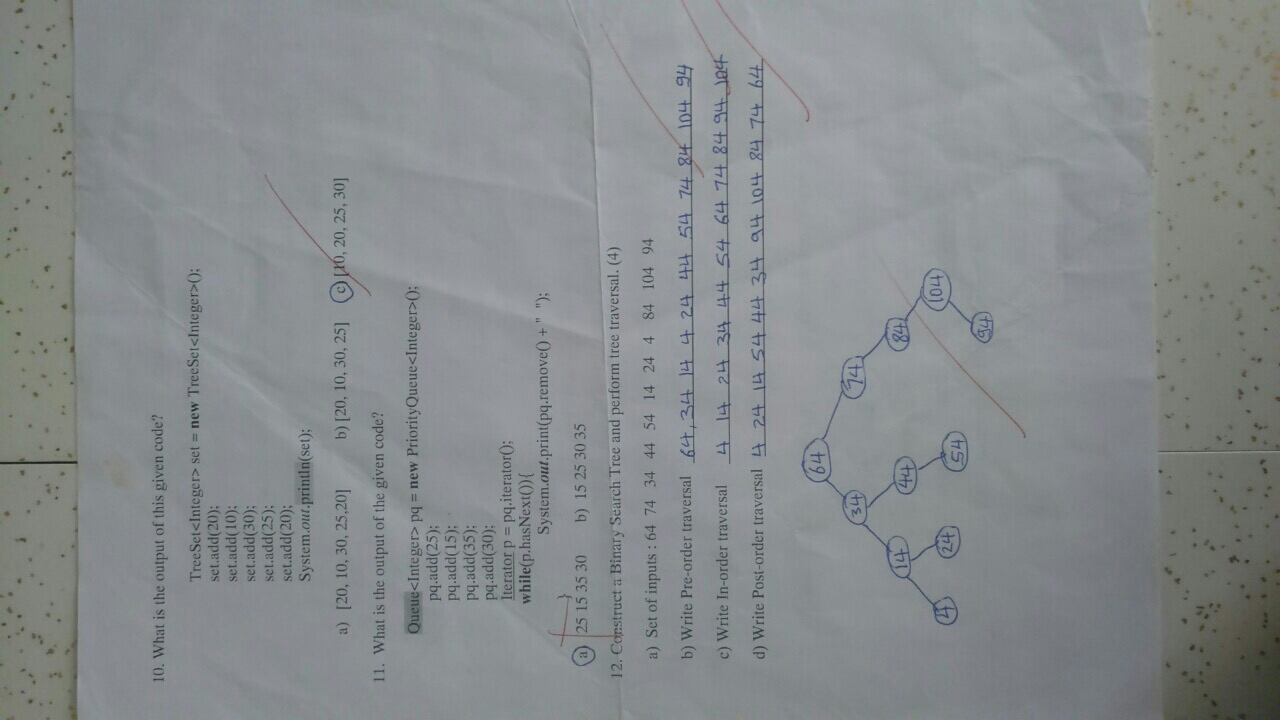 10. What is the output of this given code?
TreeSet<Integer> set = new TreeSet<Integer>();
set.add(20);
set.add(10);
set.add(30);
set.add(25);
set.add(20);
System.out.println(set);
a) [20, 10, 30, 25,20] b) [20, 10, 30, 25] c) [10, 20, 25, 30]
11. What is the output of the given code?
Queue<Integer> pq = new PriorityQueue<Integer>();
pq.add(25);
pq.add(15);
pq.add(35);
pq.add(30);
Iterator p = pq.iterator();
while(p.hasNext()){
System.out.print(pq.remove() + " ");
}
a) 25 15 35 30 b) 15 25 30 35
12. Construct a Binary Search Tree and perform tree traversal. (4)
a) Set of inputs : 64 74 34 44 54 14 24 4 84 104 94
b) Write Pre-order traversal 64, 34 14 4 24 44 54 74 84 104 94
c) Write In-order traversal 4 14 24 34 44 54 64 74 84 94 104
d) Write Post-order traversal 4 24 14 54 44 34 94 104 84 74 64
64
34 74
14 44 84
4 24 54 104
94